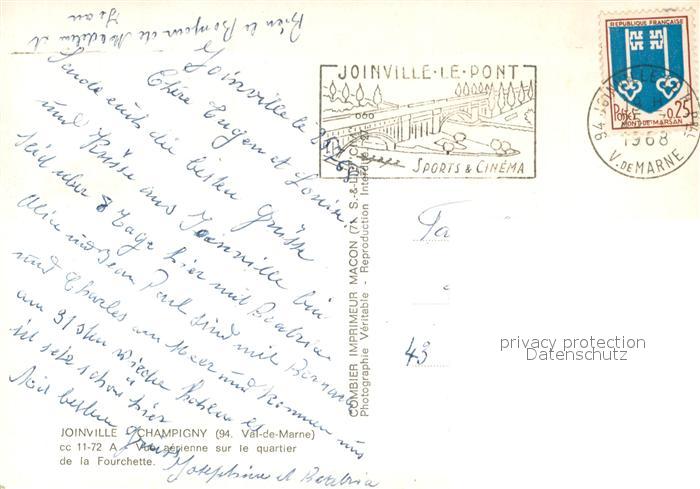 Bien le Bonjour de Madeleine et
Jean
Joinville le
Chère Eugen et Louise!
Sende euch die besten Grüsse
und Küsse aus Joinville bin
seid über 8 Tage hier mit Beatrix
Alice und Jean Paul sind mit Bernard
und Charles am Meer und kommen uns
am 31sten wieder holen es
ist sehr schön hier
Mit besten Grüss
Josephine et Beatrix
JOINVILLE-LE-PONT
SPORTS & CINÉMA
REPUBLIQUE FRANÇAISE
POSTES 0,25
MONT-DE-MARSAN
94-JOINVILLE-LE-
1968
V.DE MARNE
COMBIER IMPRIMEUR MACON (71 S.-&-L.)
Photographie Véritable - Reproduction Interdite
43
privacy protection
Datenschutz
JOINVILLE CHAMPIGNY (94. Val-de-Marne)
cc 11-72 A Vue aérienne sur le quartier
de la Fourchette.